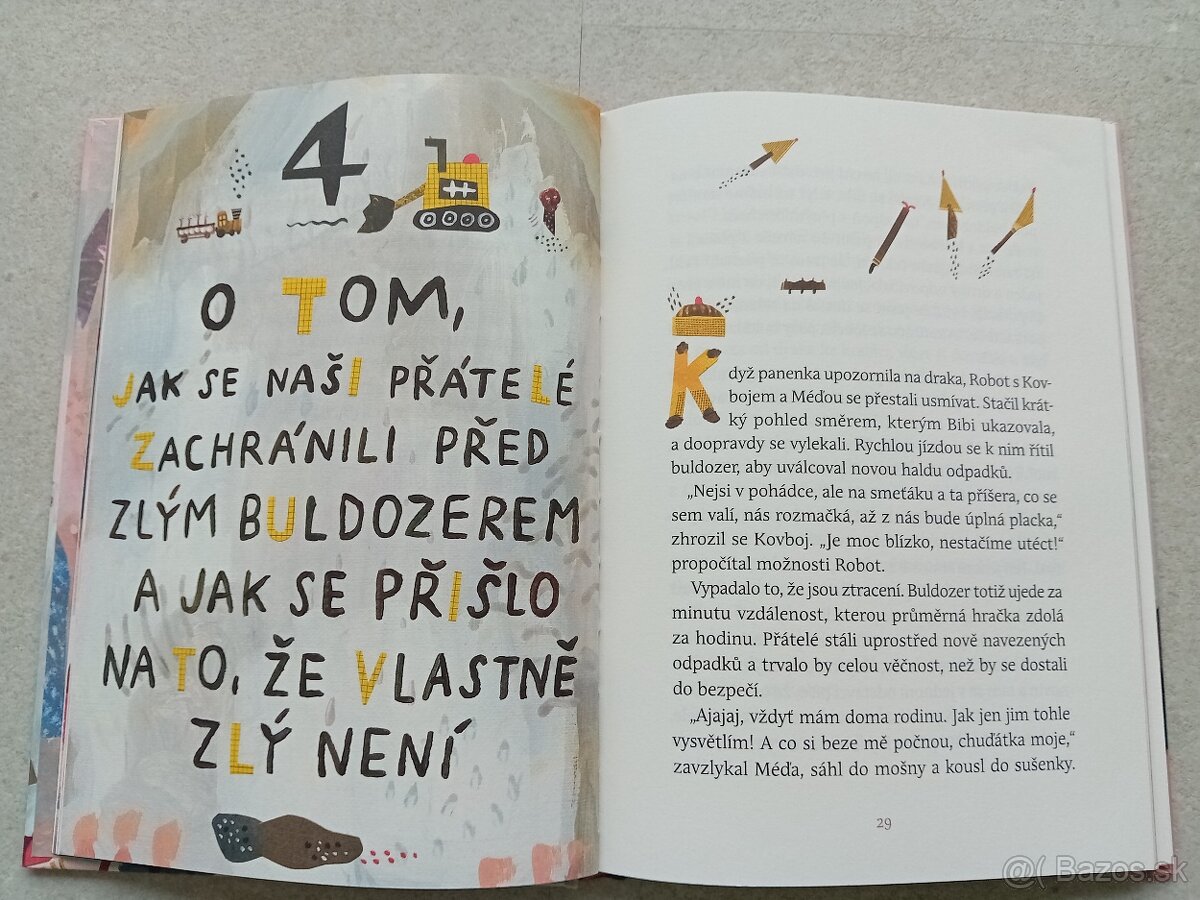 4
O TOM,
JAK SE NAŠI PŘÁTELÉ
ZACHRÁNILI PŘED
ZLÝM BULDOZEREM
A JAK SE PŘIŠLO
NA TO, ŽE VLASTNĚ
ZLÝ NENÍ
Když panenka upozornila na draka, Robot s Kov-
bojem a Méďou se přestali usmívat. Stačil krát-
ký pohled směrem, kterým Bibi ukazovala,
a doopravdy se vylekali. Rychlou jízdou se k nim řítil
buldozer, aby uválcoval novou haldu odpadků.
„Nejsi v pohádce, ale na smeťáku a ta příšera, co se
sem valí, nás rozmačká, až z nás bude úplná placka,“
zhrozil se Kovboj. „Je moc blízko, nestačíme utéct!“
propočítal možnosti Robot.
Vypadalo to, že jsou ztracení. Buldozer totiž ujede za
minutu vzdálenost, kterou průměrná hračka zdolá
za hodinu. Přátelé stáli uprostřed nově navezených
odpadků a trvalo by celou věčnost, než by se dostali
do bezpečí.
„Ajajaj, vždyť mám doma rodinu. Jak jen jim tohle
vysvětlím! A co si beze mě počnou, chuďátka moje,“
zavzlykal Méďa, sáhl do mošny a kousl do sušenky.
29
@( Bazos.sk